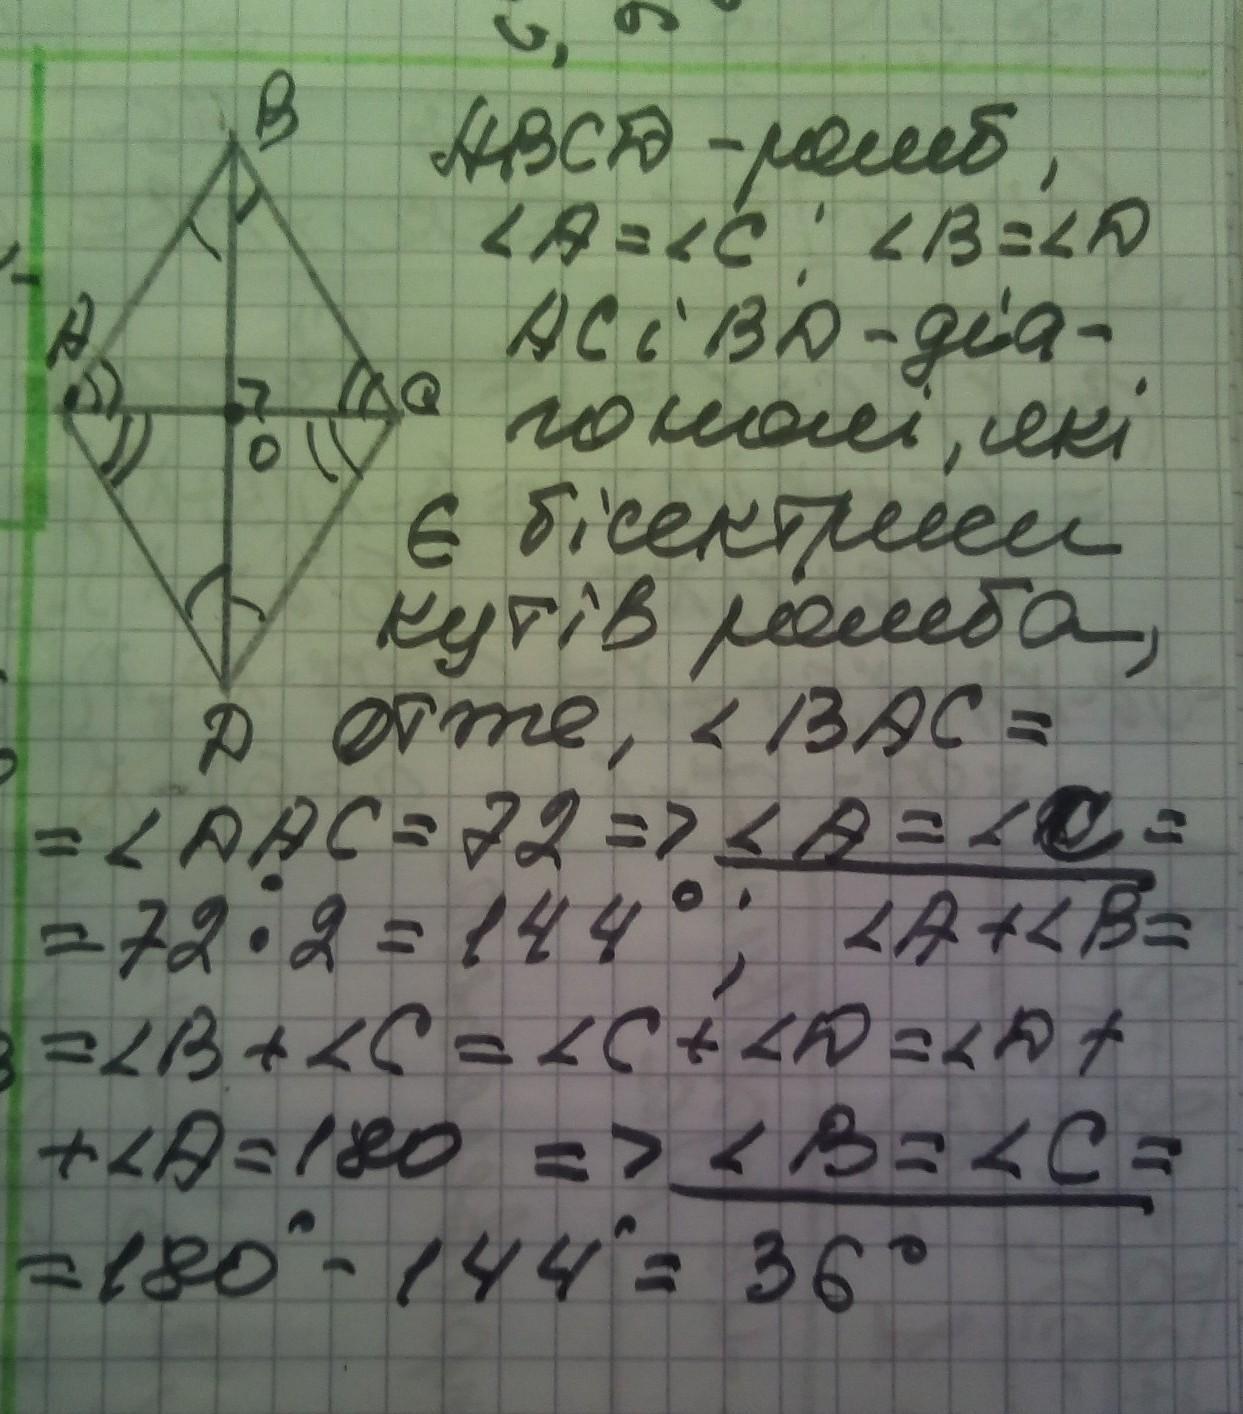 B
ABCD - ромб,
∠A = ∠C; ∠B = ∠D
A
AC і BD - діа-
C
гоналі, які
O
є бісектриси
кутів ромба,
D
отже, ∠BAC =
= ∠DAC = 72 => ∠A = ∠C =
= 72 · 2 = 144°; ∠A + ∠B =
= ∠B + ∠C = ∠C + ∠D = ∠D +
+ ∠A = 180 => ∠B = ∠C =
= 180° - 144° = 36°